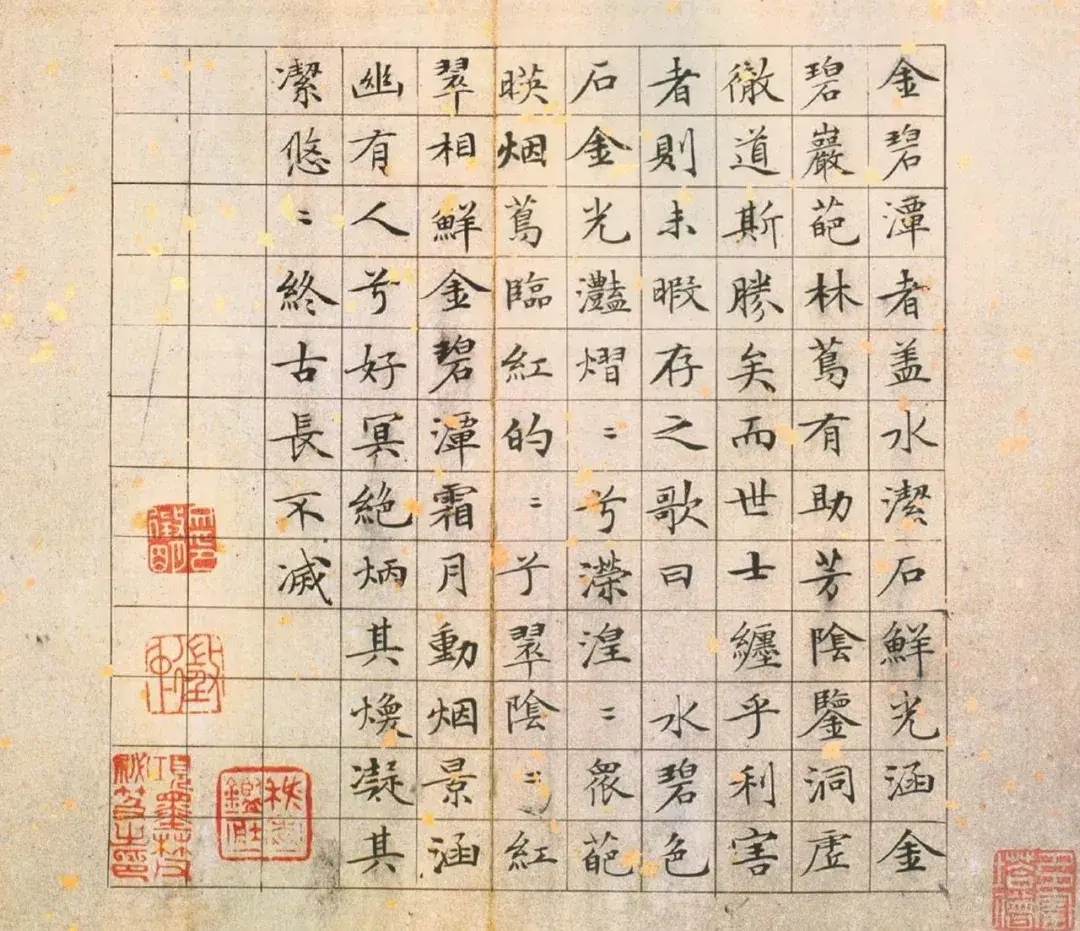 金碧潭者盖水潔石鮮光涵金
碧巖葩林蔦有助芳陰鑒洞虛
徹道斯勝矣而世士纏乎利害
者則未暇存之歌曰 水碧色
石金光灩熠〻兮濴湟〻眾葩
暎烟蔦臨紅的〻兮翠陰〻紅
翠相鮮金碧潭霜月動烟景涵
幽有人兮好冥絕炳其煥凝其
潔悠〻終古長不滅
項墨林父祕笈之印